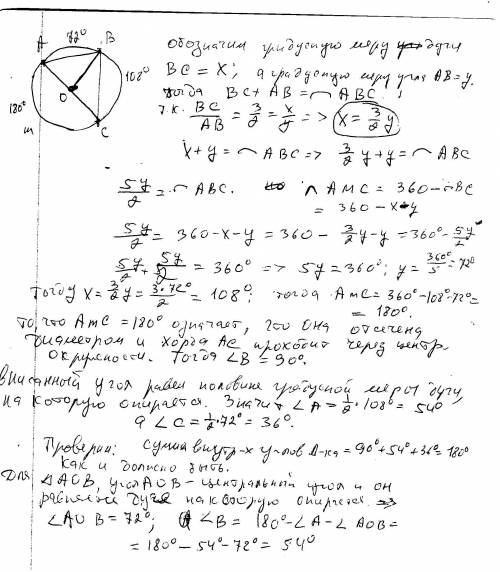 72° B
A
108°
O
180°
m
C
обозначим градусную меру дуги
BC = X; а градусную меру угла AB = y.
тогда BC + AB = ⌒ ABC.
т.к. BC/AB = 3/2 = x/y = > x = 3/2 y
x + y = ⌒ ABC => 3/2 y + y = ⌒ ABC
5y/2 = ⌒ ABC. ⌒ AMC = 360 - ⌒BC
= 360 - x - y
5y/2 = 360 - x - y = 360 - 3/2 y - y = 360° - 5y/2
5y/2 + 5y/2 = 360° => 5y = 360°; y = 360°/5 = 72°
Тогда x = 3/2 y = 3·72°/2 = 108°; тогда AmC = 360° - 108° - 72° =
= 180°.
то, что AmC = 180° означает, что она отсечена
диаметром и хорда AC проходит через центр
окружности. Тогда ∠B = 90°.
вписанный угол равен половине градусной меры дуги,
на которую опирается. Значит ∠A = 1/2·108° = 54°
а ∠C = 1/2·72° = 36°.
Проверим: сумма внутр-х углов Δ-ка = 90° + 54° + 36° = 180°
как и должно быть.
Для ΔAOB, угол AOB - центральный угол и он
равняется дуге на которую опирается. =>
∠AOB = 72°; ∠B = 180° - ∠A - ∠AOB =
= 180° - 54° - 72° = 54°